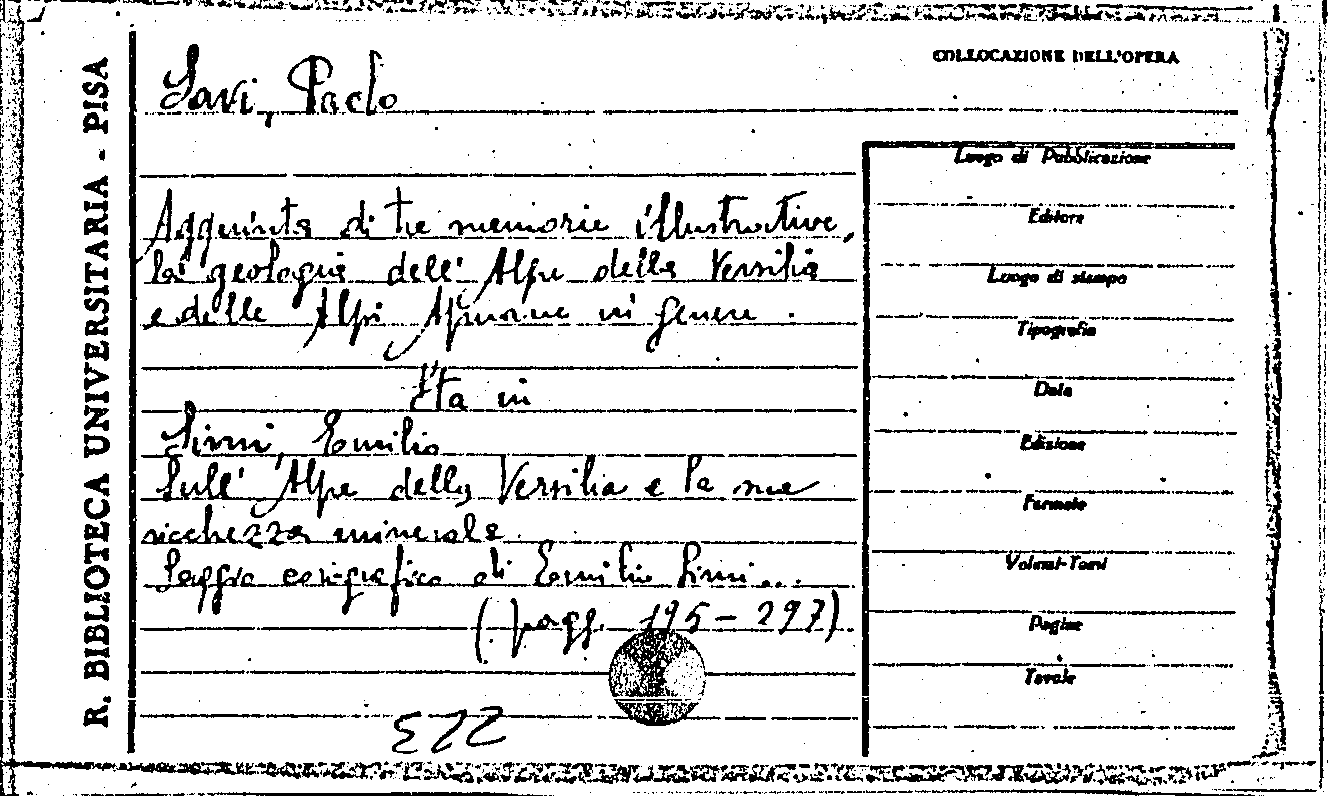 R. BIBLIOTECA UNIVERSITARIA - PISA
COLLOCAZIONE DELL'OPERA
Savi, Paolo
Aggiunta di tre memorie illustrative,
la geologia dell' Alpe della Versilia
e delle Alpi Apuane in genere.
Sta in
Simi, Emilio
Sull' Alpe della Versilia e la sue
ricchezza minerale.
Saggio corografico di Emilio Simi...
(pagg. 195-297)
Luogo di Pubblicazione
Editore
Luogo di stampa
Tipografia
Data
Edizione
Formato
Volumi-Tomi
Pagine
Tavole